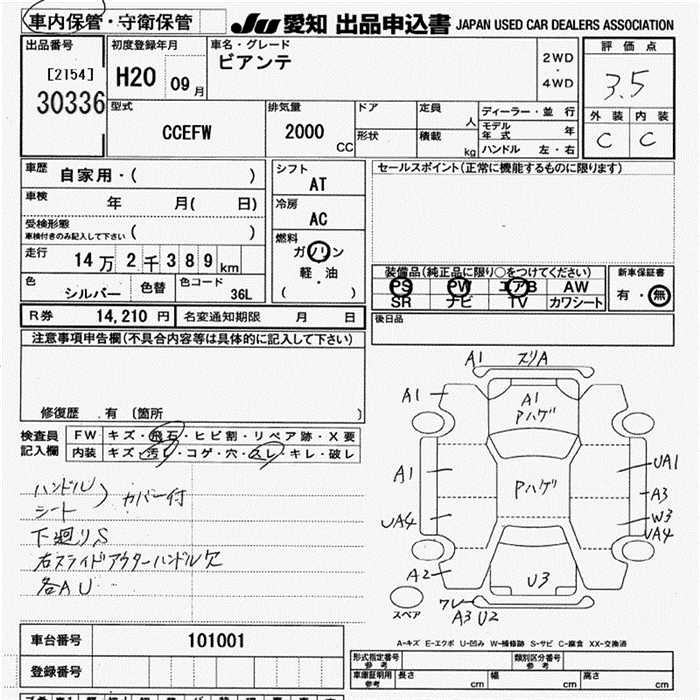 車内保管・守衛保管
JU 愛知 出品申込書 JAPAN USED CAR DEALERS ASSOCIATION
出品番号
[2154]
30336
初度登録年月
H20 09月
車名・グレード
ビアンテ
2WD
・
4WD
評価点
3.5
外装 内装
C C
型式
CCEFW
排気量
2000 CC
ドア
形状
定員 人
積載 kg
ディーラー・並行
モデル年式 年
ハンドル 左・右
車歴 自家用・( )
車検 年 月( 日)
受検形態
車検付きのみ記入して下さい ( )
走行 14万2千389km
色 シルバー
色替
色コード 36L
シフト
AT
冷房
AC
燃料
ガソリン
軽・油
( )
セールスポイント(正常に機能するものに限ります)
装備品(純正品に限り○をつけてください)
PS PW エアB AW
SR ナビ TV カワシート
新車保証書
有・無
後日品
R券 14,210円
名変通知期限 月 日
注意事項申告欄(不具合内容等は具体的に記入して下さい)
修復歴 有 〔箇所 〕
検査員
記入欄
FW キズ・飛石・ヒビ割・リペア跡・X要
内装 キズ・汚レ・コゲ・穴・スレ・キレ・破レ
ハンドル
シート
カバー付
下廻りS
右スライドアウターハンドル欠
各AU
A1 ズリA
A1
A1
Pハゲ
A1
Pハゲ
UA1
A3
UA4
W3
UA4
A2
U3
ワレ
A3 U2
スペア
A-キズ E-エクボ U-凹み W-補修跡 S-サビ C-腐食 XX-交換済
車台番号 101001
登録番号
形式指定番号
参考
類別区分番号
参考
車庫証明用
参考
長さ cm
幅 cm
高さ cm